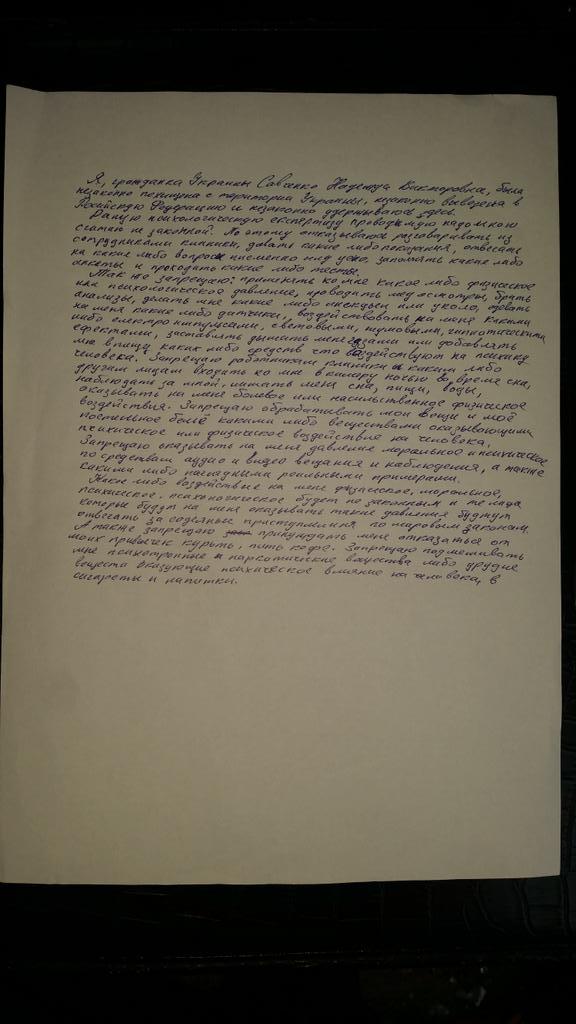 Я, гражданка Украины Савченко Надежда Викторовна, была
незаконно похищена с територии Украины, незаконно вывезена в
Российскую Федерацию и незаконно удерживаюсь здесь.
Даную психологическую експертизу проводимую надомною
считаю не законной. По этому отказываюсь разговаривать из
сотрудниками клиники, давать какие либо показания, отвечать
на какие либо вопросы писменно под усно, заполнять какие либо
анкеты и проходить какие либо тесты.
Так же запрещаю: применять ко мне какое либо физическое
или психологическое давление, проводить мед осмотры, брать
анализы, делать мне какие либо инекцыи или уколы, девать
на меня какие либо датчики, воздействовать на меня какими
либо електроимпульсами, световыми, шумовыми, гипнотическими
ефектами, заставлять дышать газами или добавлять
мне в пищу каких либо средств что воздействуют на психику
человека. Запрещаю работникам клиники и каким либо
другим лицам входить ко мне в камеру ночью во время сна,
наблюдать за мной, лишать меня сна, пищи, воды,
оказывать на меня болевое или насильственное физическое
воздействия. Запрещаю обрабатывать мои вещи и моё
постельное бельё какими либо веществами оказывающими
психическое или физическое воздействия на человека.
Запрещаю оказывать на меня давление моральное и психическое
по средствам аудио и видео вещания и наблюдения, а также
какими либо наглядными реальными примерами.
Какое либо воздействие на меня физическое, моральное,
психическое, психологическое будет не законным и те лица
которые будут на меня оказывать такие давления будут
отвечать за содеяные приступления по мировым законам.
А также запрещаю принуждать меня отказаться от
моих привычек курить, пить кофе. Запрещаю подмешивать
мне психотропные и наркотические вещества либо другие
веществa оказующие психическое влияние на человека, в
сигареты и напитки.